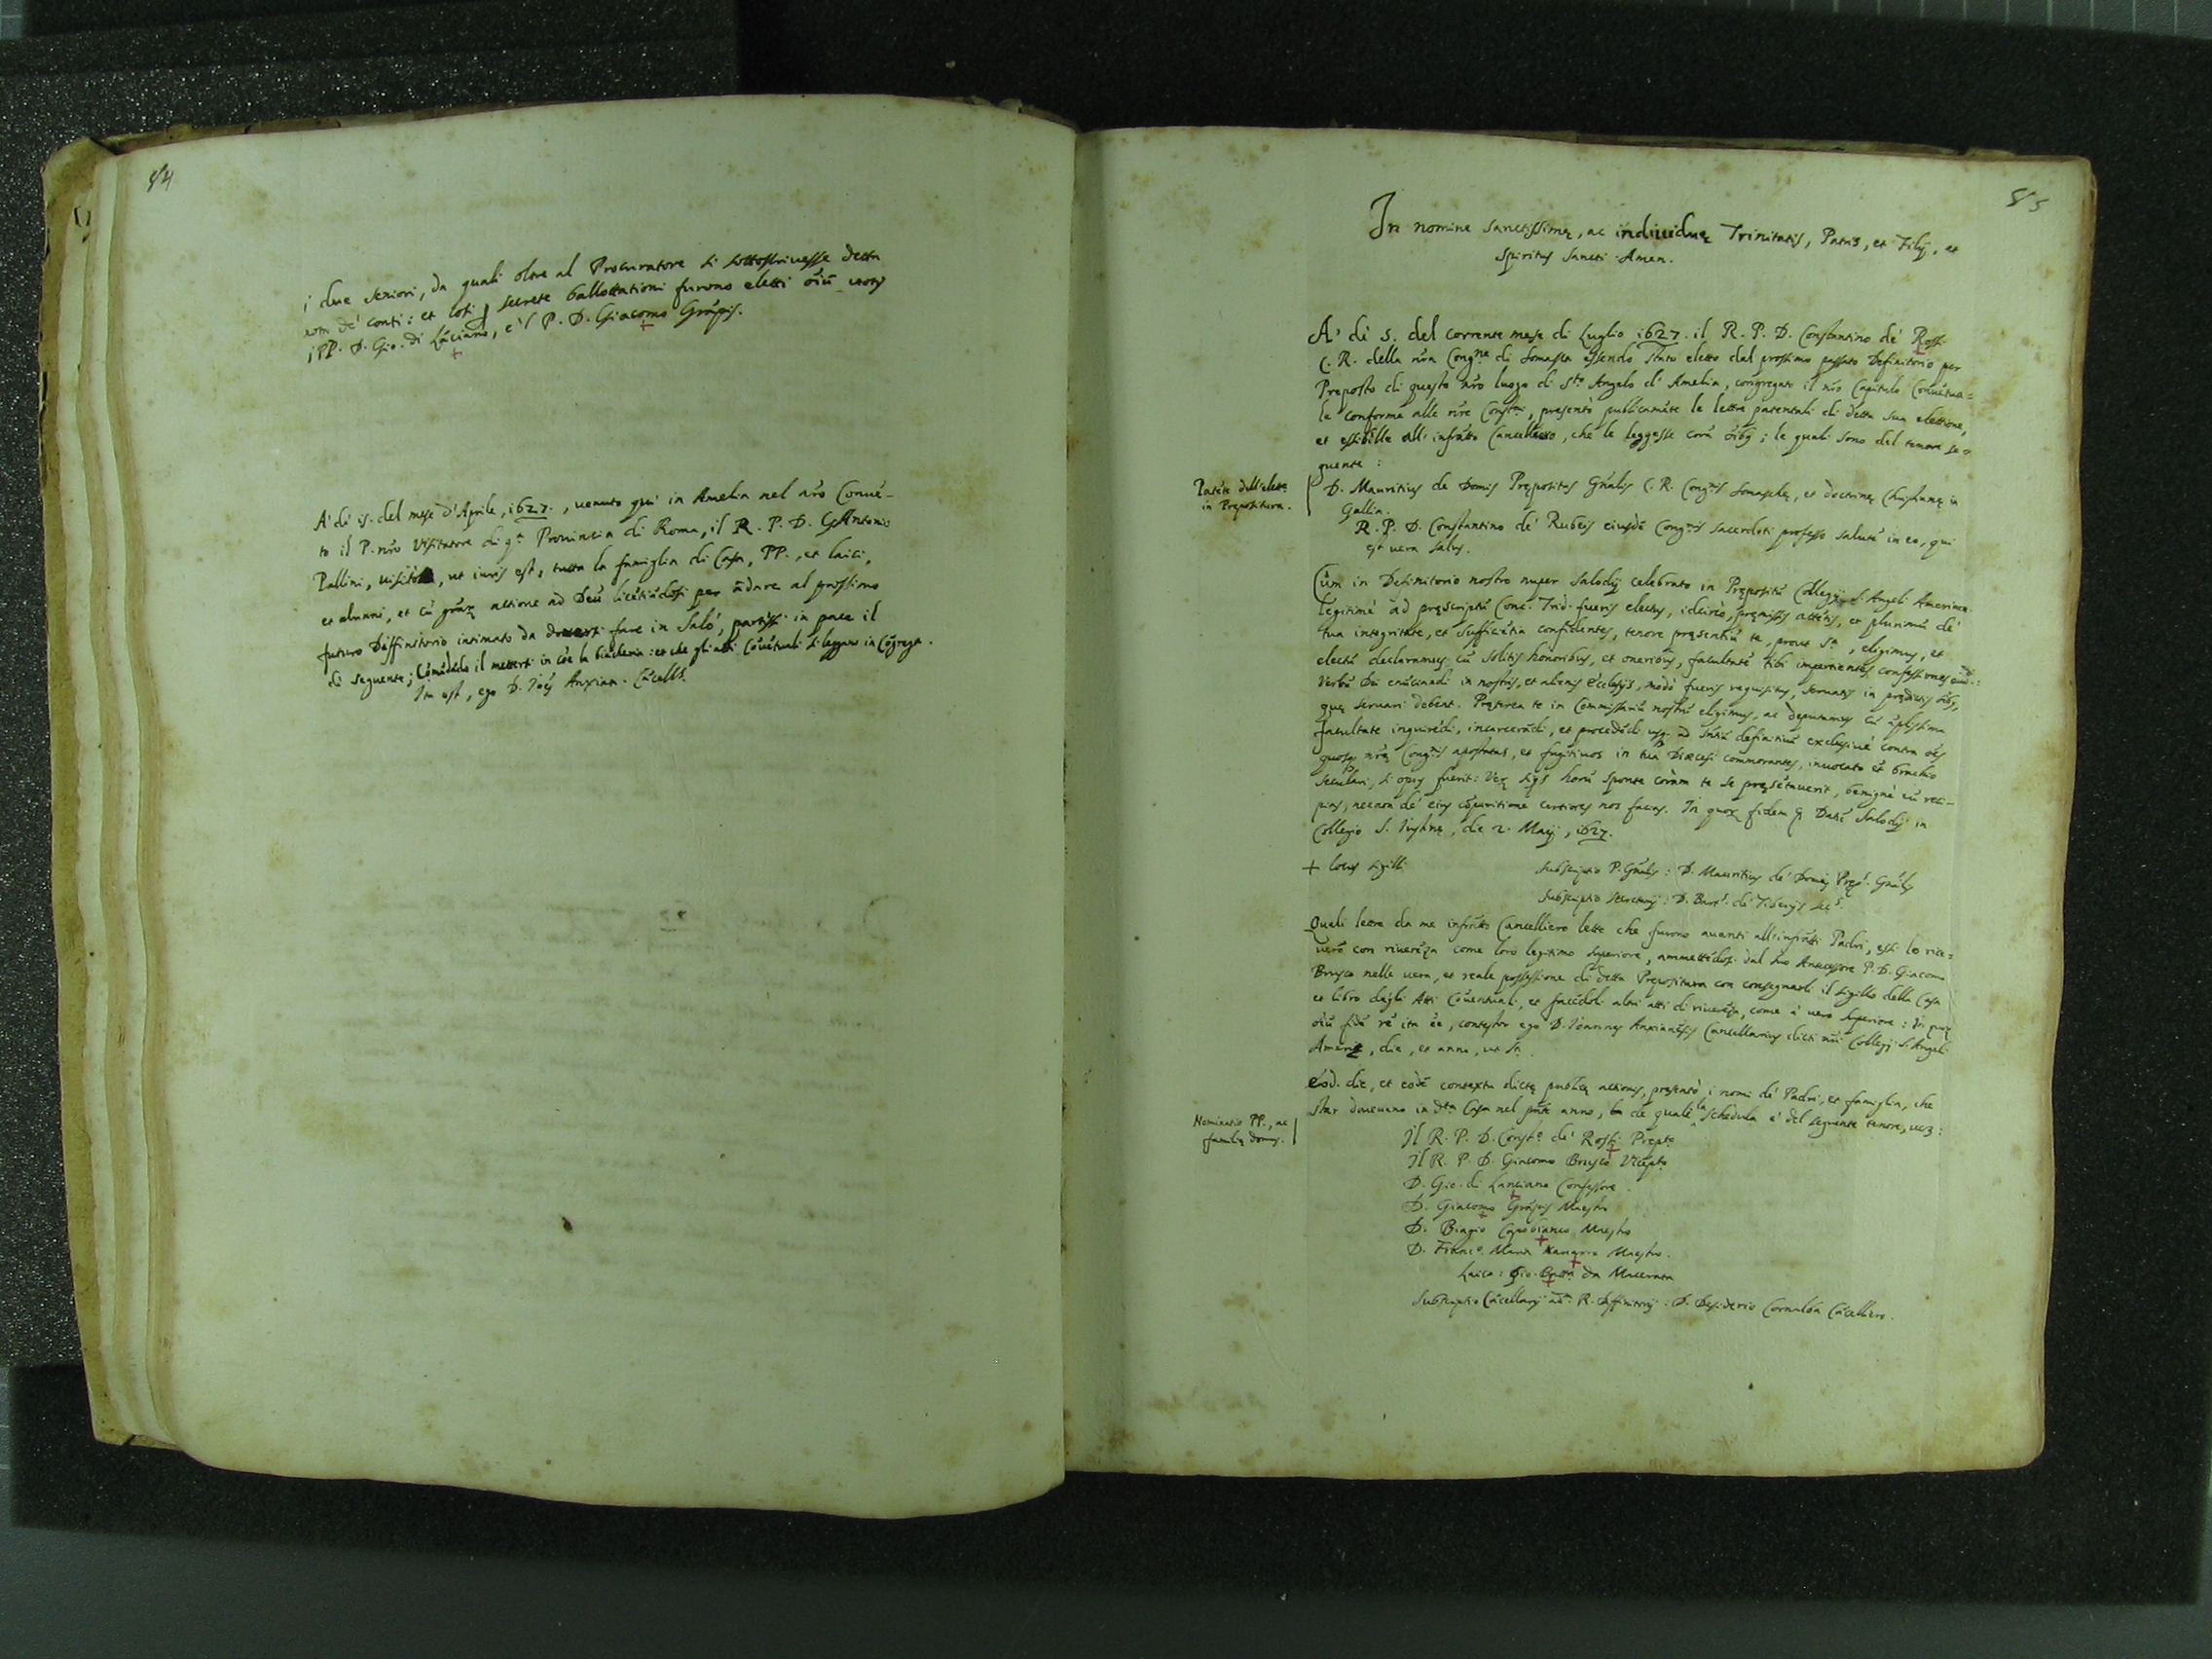 84
i due seniori, da quali oltre al Procuratore si sottoscrivesse detta
nota de' conti: et così p secrete ballottationi furono eletti oiũ votis
i PP. D. Gio. di Lãciano, e 'l P. D. Giacomo Gràpis.
A' dì 15. del mese d'Aprile, 1627., venuto quì in Amelia nel nr̃o Convẽ-
to il P. nr̃o Visitatore di qª Provincia di Roma, il R. P. D. G. Antonio
Pallini, visitò, ut iuris est, tutta la famiglia di Casa, PP., et laici,
et alunni, et cũ grãꝝ actione ad Deũ licẽtiãdosi per ãdare al prossimo
futuro Diffinitorio intimato da doversi fare in Salò, partissi in pace il
dì seguente; Comãdãdo il mettersi in cõe la biãcheria: et che gli atti Cõvẽtuali si leggano in Cõgrega.
Ita est, ego D. Joẽs Anxian. Cãcells.
85
In nomine sanctissimę, ac individuę Trinitatis, Patris, et Filij, et
Spiritus Sancti Amen.
A' dì 5. del corrente mese di Luglio 1627. il R. P. D. Constantino de' Rossi
C. R. della nr̃a Congne di Somasca essendo stato eletto dal prossimo passato Definitorio per
Preposto di questo nr̃o luogo di Sto Angelo d'Amelia, congregato il nr̃o Capitulo Cõvẽtua=
le conforme alle nr̃e Constni, presentò publicamẽte le lettre patentali di detta sua elettione,
et essibille all'infratto Cancelliero, che le leggesse corã oĩbꝫ; le quali sono del tenore se=
guente:
Patẽte dell'elettne
in Prepositura.
D. Mauritius de Domis Prępositus Gñalis C. R. Congnis Somaschę, et doctrinę Christianę in
Gallia.
R. P. D. Constantino de' Rubeis eiusdẽ Congnis sacerdoti professo salutẽ in eo, qui
est vera salus.
Cũm in Definitorio nostro nuper Salodij celebrato in Prępositũ Collegij S. Angeli Amerinen.
legitimè ad pręscriptũ Conc. Trid. fueris electus, idcircò, pręmissis attẽtis, et plurimũ de'
tua integritate, et sufficiẽtia confidentes, tenore pręsentiũ te, prout sª, eligimus, et
electũ declaramus cũ solitis honoribus, et oneribus, facultatẽ tibi impertientes confessiones audiẽdi:
Verbũ Dei enũciandi in nostris, et alienis Ecclesijs, modò fueris requisitus, servatis in prędictis oĩbꝫ,
quę servari debent. Pręterea te in Commissariũ nostrũ eligimus, ac deputamus cũ ãplissima
facultate inquirẽdi, incarcerãdi, et procedẽdi usqꝫ ad sñtiã definitivã exclusivè contra oẽs
quosqꝫ nr̃ę Congnis apostatas, et fugitivos in tua Diœcesi commorantes, invocato ẽt brachio
seculari, si opus fuerit: Verũ siqs horũ sponte coràm te se pręsẽtaverit, benignè eũ reci-
pias, necnon de' eius cõparitione certiores nos facias. In quoꝝ fidem &c Datũ Salodij in
Collegio S. Justinę, die 2. Maij, 1627.
+ locus sigilli
Subscriptio P. Gñalis: D. Mauritius de' Domis Pręp. Gñalis
Subscriptio Secretarij: D. Bart. de' Tiberijs Secs.
Quali lettre da me infratto Cancelliero lette che furono avanti all'infratti Padri, essi lo rice=
verõ con riverẽza come loro legitimo superiore, ammettẽdosi dal suo Antecessore P. D. Giacomo
Brusco nella vera, et reale possessione di detta Prepositura con consegnarli il sigillo della Casa
et libro degli Atti Cõventuali, et facẽdoli altri atti di riverẽza, come à vero superiore: In quoꝝ
oiũ fidẽ rẽ ita eẽ, contestor ego D. Joannes Anxianẽsis Cancellarius dicti nr̃i Collegij S. Angeli
Amerię, die, et anno, ut sª.
Eod. die, et eodẽ contextu dictę publicę actionis, presentò i nomi de' Padri, et famiglia, che
star dovevano in dtta Casa nel pñte anno, de quali la schedula è del seguente tenore, vez:
Nominatio PP., ac
familię domus.
Il R. P. D. Consto de' Rossi Prepto
Il R. P. D. Giacomo Brusco Vicepto
D. Gio. di Lanciano Confessore.
D. Giacomo Gràpis Maestro
D. Biagio Capobianco Maestro
D. Franco. Maria Navarro Maestro.
Laico: Gio. Batta da Macerata
Subscriptio Cãcellarij adm. R. Diffinitorij: D. Desiderio Cornalba Cãcelliero.